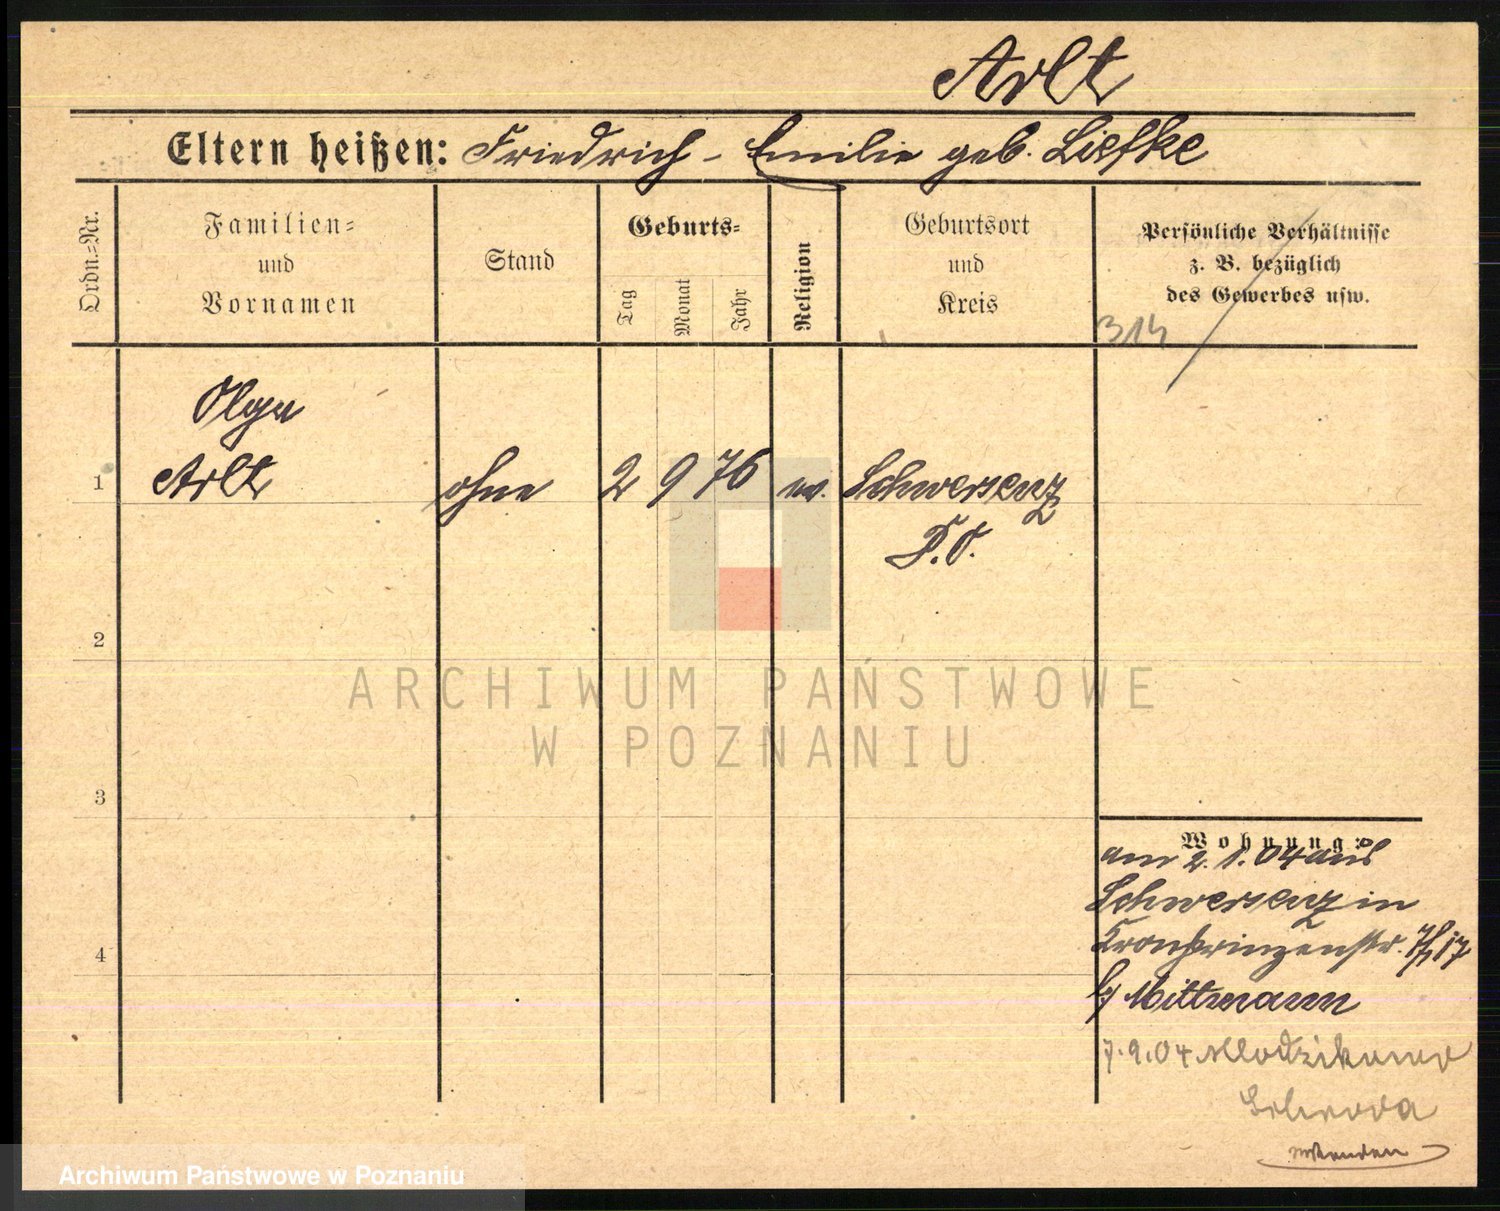 Arlt
Eltern heißen: Friedrich - Emilie geb. Liefke
Ordn.=Nr.
Familien=
und
Vornamen
Stand
Geburts=
Tag
Monat
Jahr
Religion
Geburtsort
und
Kreis
Persönliche Verhältnisse
z. B. bezüglich
des Gewerbes usw.
314
Olga
1 Arlt ohne 2 9 76 ev. Schwersenz
P.O.
2
3
4
Wohnung:
am 2. 1. 04 aus
Schwersenz in
Kronprinzenstr. 17
b/ Mittmann
7.9.04 Mlodzikowo
Schroda
ARCHIWUM PAŃSTWOWE
W POZNANIU
Archiwum Państwowe w Poznaniu